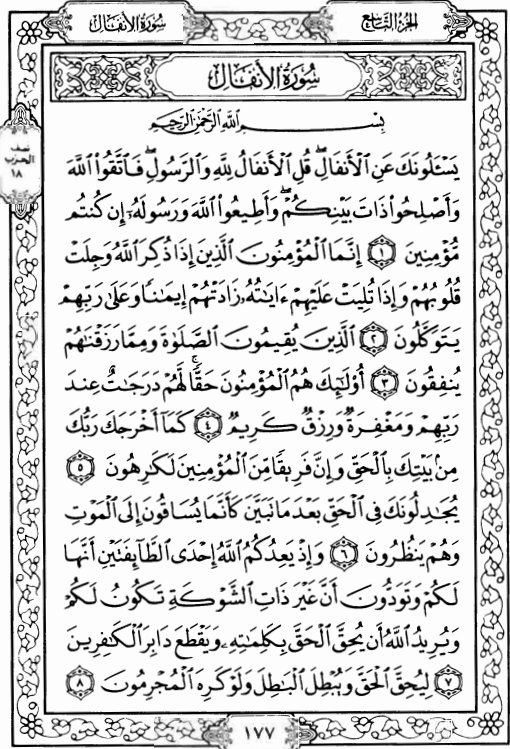 سُورَةُ الأَنفَالِ
الجُزْءُ التَّاسِعُ
نصف
الحزب
١٨
سُورَةُ الأَنفَالِ
بِسْمِ ٱللَّهِ ٱلرَّحْمَٰنِ ٱلرَّحِيمِ
يَسْـَٔلُونَكَ عَنِ ٱلْأَنفَالِۖ قُلِ ٱلْأَنفَالُ لِلَّهِ وَٱلرَّسُولِۖ فَٱتَّقُوا۟ ٱللَّهَ
وَأَصْلِحُوا۟ ذَاتَ بَيْنِكُمْۖ وَأَطِيعُوا۟ ٱللَّهَ وَرَسُولَهُۥٓ إِن كُنتُم
مُّؤْمِنِينَ ١ إِنَّمَا ٱلْمُؤْمِنُونَ ٱلَّذِينَ إِذَا ذُكِرَ ٱللَّهُ وَجِلَتْ
قُلُوبُهُمْ وَإِذَا تُلِيَتْ عَلَيْهِمْ ءَايَٰتُهُۥ زَادَتْهُمْ إِيمَٰنًا وَعَلَىٰ رَبِّهِمْ
يَتَوَكَّلُونَ ٢ ٱلَّذِينَ يُقِيمُونَ ٱلصَّلَوٰةَ وَمِمَّا رَزَقْنَٰهُمْ
يُنفِقُونَ ٣ أُو۟لَٰٓئِكَ هُمُ ٱلْمُؤْمِنُونَ حَقًّاۚ لَّهُمْ دَرَجَٰتٌ عِندَ
رَبِّهِمْ وَمَغْفِرَةٌ وَرِزْقٌ كَرِيمٌ ٤ كَمَآ أَخْرَجَكَ رَبُّكَ
مِنۢ بَيْتِكَ بِٱلْحَقِّ وَإِنَّ فَرِيقًا مِّنَ ٱلْمُؤْمِنِينَ لَكَٰرِهُونَ ٥
يُجَٰدِلُونَكَ فِى ٱلْحَقِّ بَعْدَ مَا تَبَيَّنَ كَأَنَّمَا يُسَاقُونَ إِلَى ٱلْمَوْتِ
وَهُمْ يَنظُرُونَ ٦ وَإِذْ يَعِدُكُمُ ٱللَّهُ إِحْدَى ٱلطَّآئِفَتَيْنِ أَنَّهَا
لَكُمْ وَتَوَدُّونَ أَنَّ غَيْرَ ذَاتِ ٱلشَّوْكَةِ تَكُونُ لَكُمْ
وَيُرِيدُ ٱللَّهُ أَن يُحِقَّ ٱلْحَقَّ بِكَلِمَٰتِهِۦ وَيَقْطَعَ دَابِرَ ٱلْكَٰفِرِينَ
٧ لِيُحِقَّ ٱلْحَقَّ وَيُبْطِلَ ٱلْبَٰطِلَ وَلَوْ كَرِهَ ٱلْمُجْرِمُونَ ٨
١٧٧